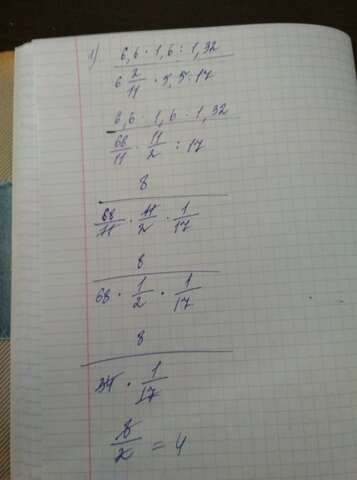 1) 6,6 · 1,6 : 1,32
6 2/11 · 5,5 : 17
6,6 · 1,6 · 1,32
68/11 · 11/2 : 17
8
68/11 · 11/2 · 1/17
8
68 · 1/2 · 1/17
8
34 · 1/17
8/2 = 4